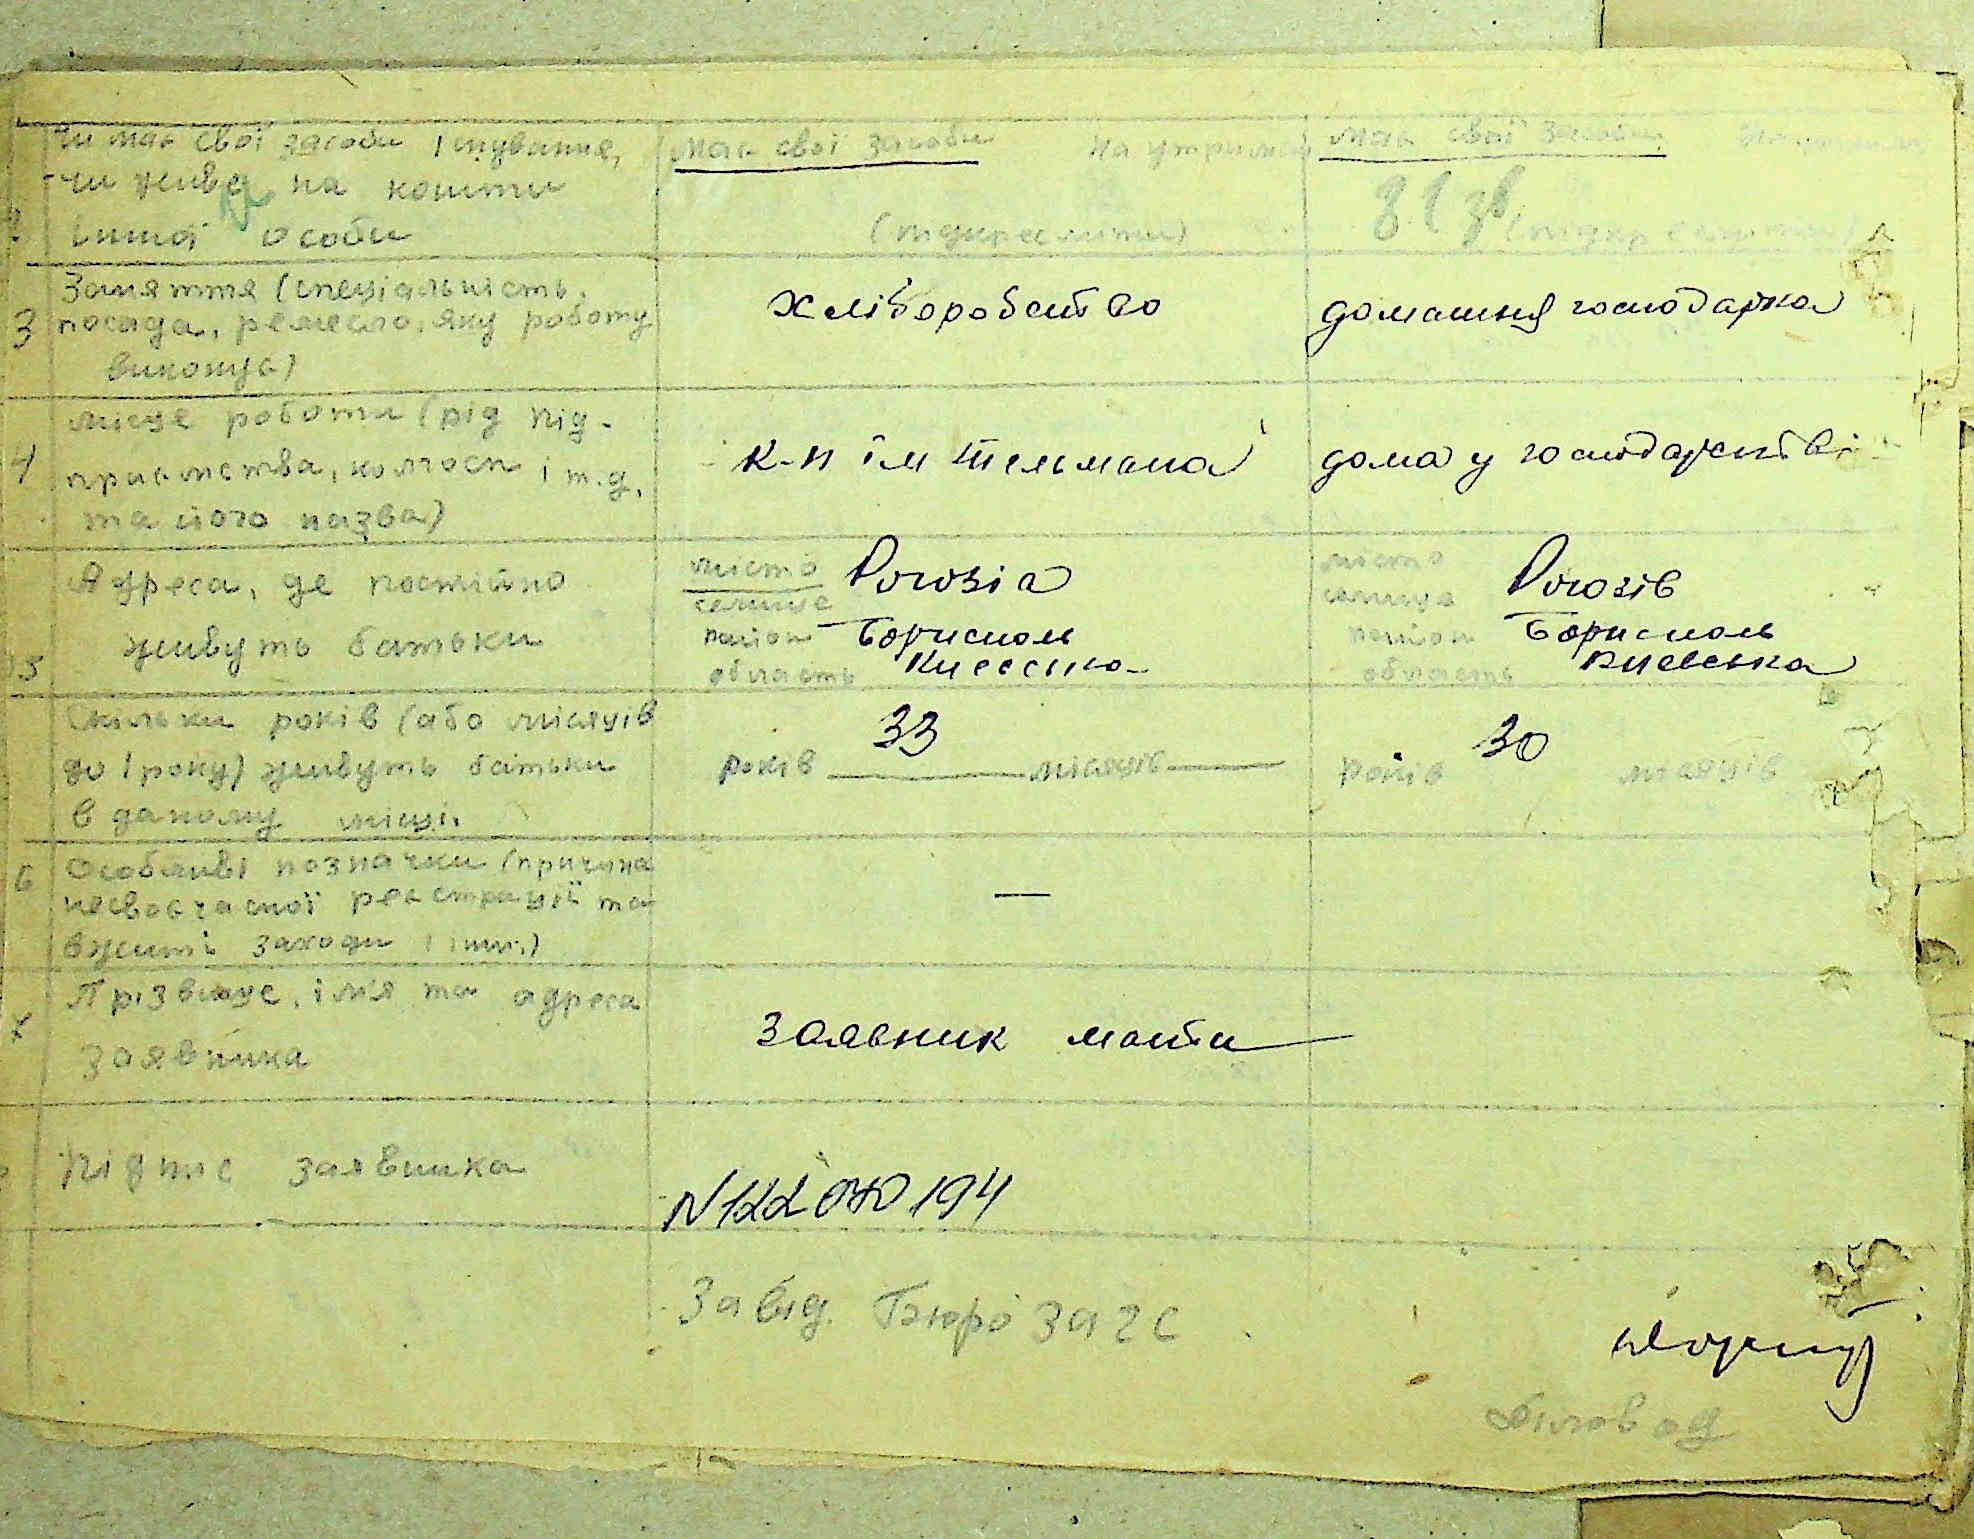 Чи має свої засоби існування, Має свої засоби На утриман Має свої засоби
чи живе на кошти
іншої особи (підкреслити) (підкреслити)
3 Заняття (спеціальність,
посада, ремесло, яку роботу хліборобство домашня господарка
виконує)
4 Місце роботи (рід під-
приємства, колгосп і т.д. к-п ім Тельмана дома у господарстві
та його назва)
15 Адреса, де постійно місто Рогозів місто Рогозів
селище селище
живуть батьки район Бориспіль район Борисполь
область Київська область Київська
Скільки років (або місяців 33 30
до 1 року) живуть батьки років місяців років місяців
в даному місці.
6 Особливі позначки (причина
несвоєчасної реєстрації та —
вжиті заходи і інш.)
7 Прізвище, ім'я та адреса
заявника заявник мати
Підпис заявника
N 122 194
Завід. Бюро Загс
Діловод